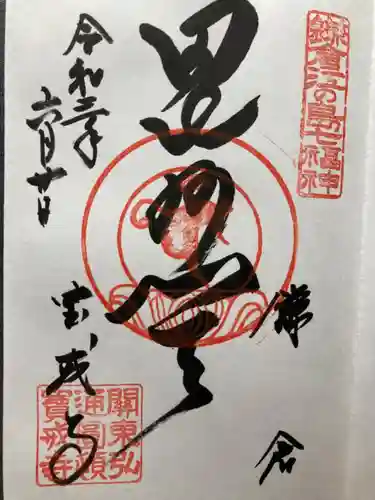 鎌倉江の島七福神
鎌倉
毘沙門天
令和二年
六月廿日
宝戒寺
關東弘
通圓頓
寶戒寺